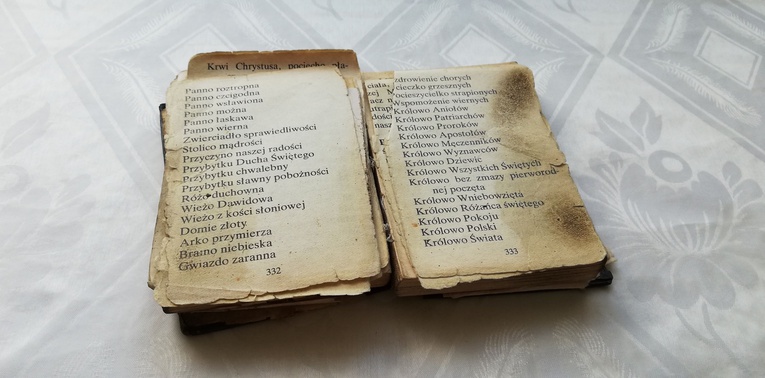 Krwi Chrystusa, pociecho pła-
Panno roztropna
Panno czcigodna
Panno wsławiona
Panno można
Panno łaskawa
Panno wierna
Zwierciadło sprawiedliwości
Stolico mądrości
Przyczyno naszej radości
Przybytku Ducha Świętego
Przybytku chwalebny
Przybytku sławny pobożności
Różo duchowna
Wieżo Dawidowa
Wieżo z kości słoniowej
Domie złoty
Arko przymierza
Bramo niebieska
Gwiazdo zaranna
332
ciała,
zej
nasz
zdrowienie chorych
cieczko grzesznych
ocieszycielko strapionych
Wspomożenie wiernych
Królowo Aniołów
Królowo Patriarchów
Królowo Proroków
Królowo Apostołów
Królowo Męczenników
Królowo Wyznawców
Królowo Dziewic
Królowo Wszystkich Świętych
Królowo bez zmazy pierworod-
nej poczęta
Królowo Wniebowzięta
Królowo Różańca świętego
Królowo Pokoju
Królowo Polski
Królowo Świata
333